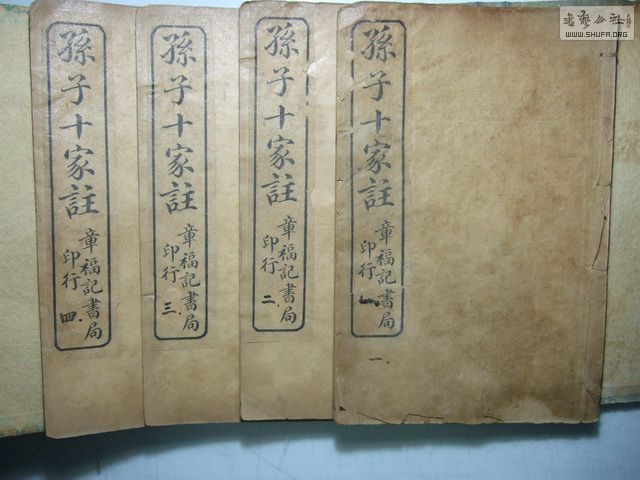 孫子十家註
章福記書局
印行
一
一.
孫子十家註
章福記書局
印行
二.
孫子十家註
章福記書局
印行
三.
孫子十家註
章福記書局
印行
四.
WWW.SHUFA.ORG